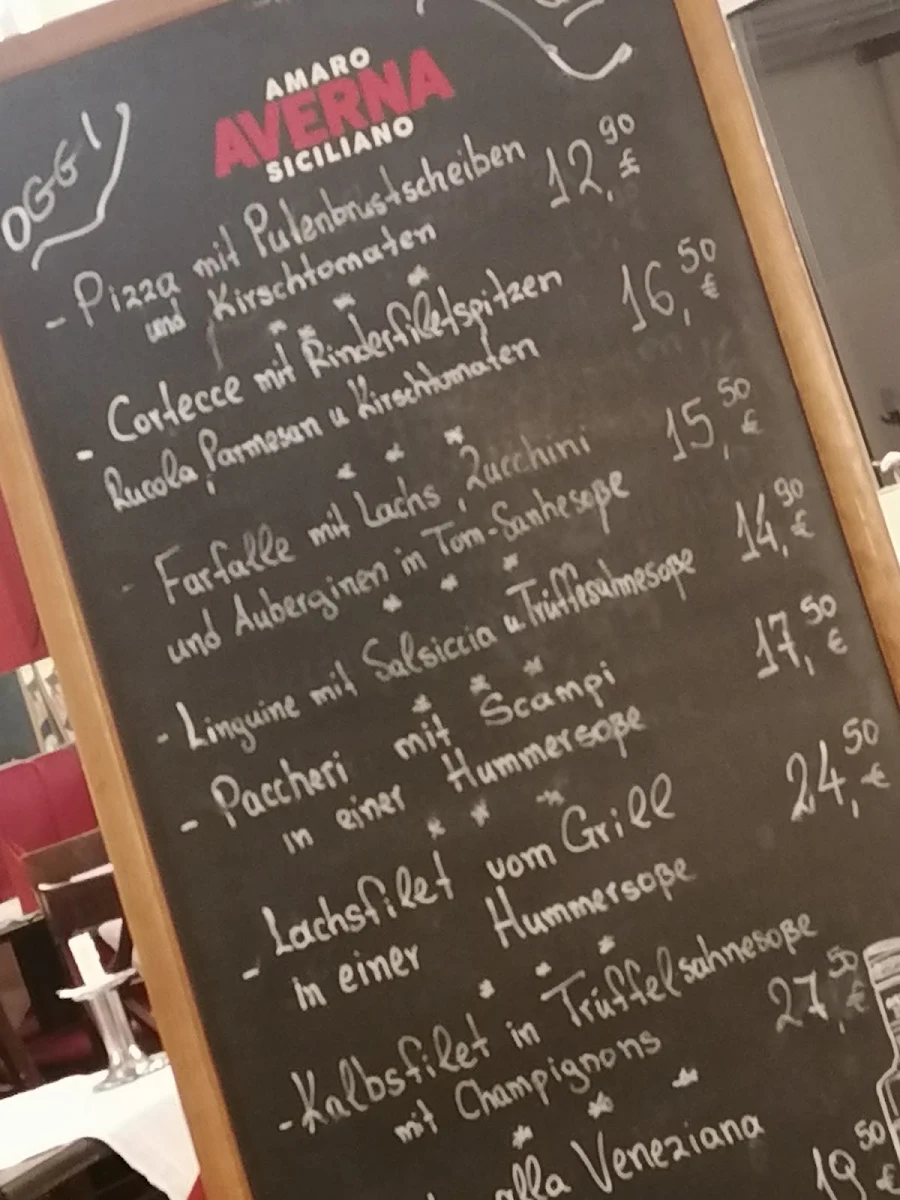 OGGI
AMARO
AVERNA
SICILIANO
- Pizza mit Putenbrustscheiben 12,90 €
und Kirschtomaten
* * *
- Cortecce mit Rinderfiletspitzen 16,50 €
Rucola, Parmesan u Kirschtomaten
* * *
- Farfalle mit Lachs, Zucchini 15,50 €
und Auberginen in Tom-Sanhesoße
* * *
- Linguine mit Salsiccia u Trüffesahnesoße 14,90 €
* * *
- Paccheri mit Scampi 17,50 €
in einer Hummersoße
* * *
- Lachsfilet vom Grill 24,50 €
in einer Hummersoße
* * *
- Kalbsfilet in Trüffelsahnesoße 27,50 €
mit Champignons
* * *
alla Veneziana 19,50 €